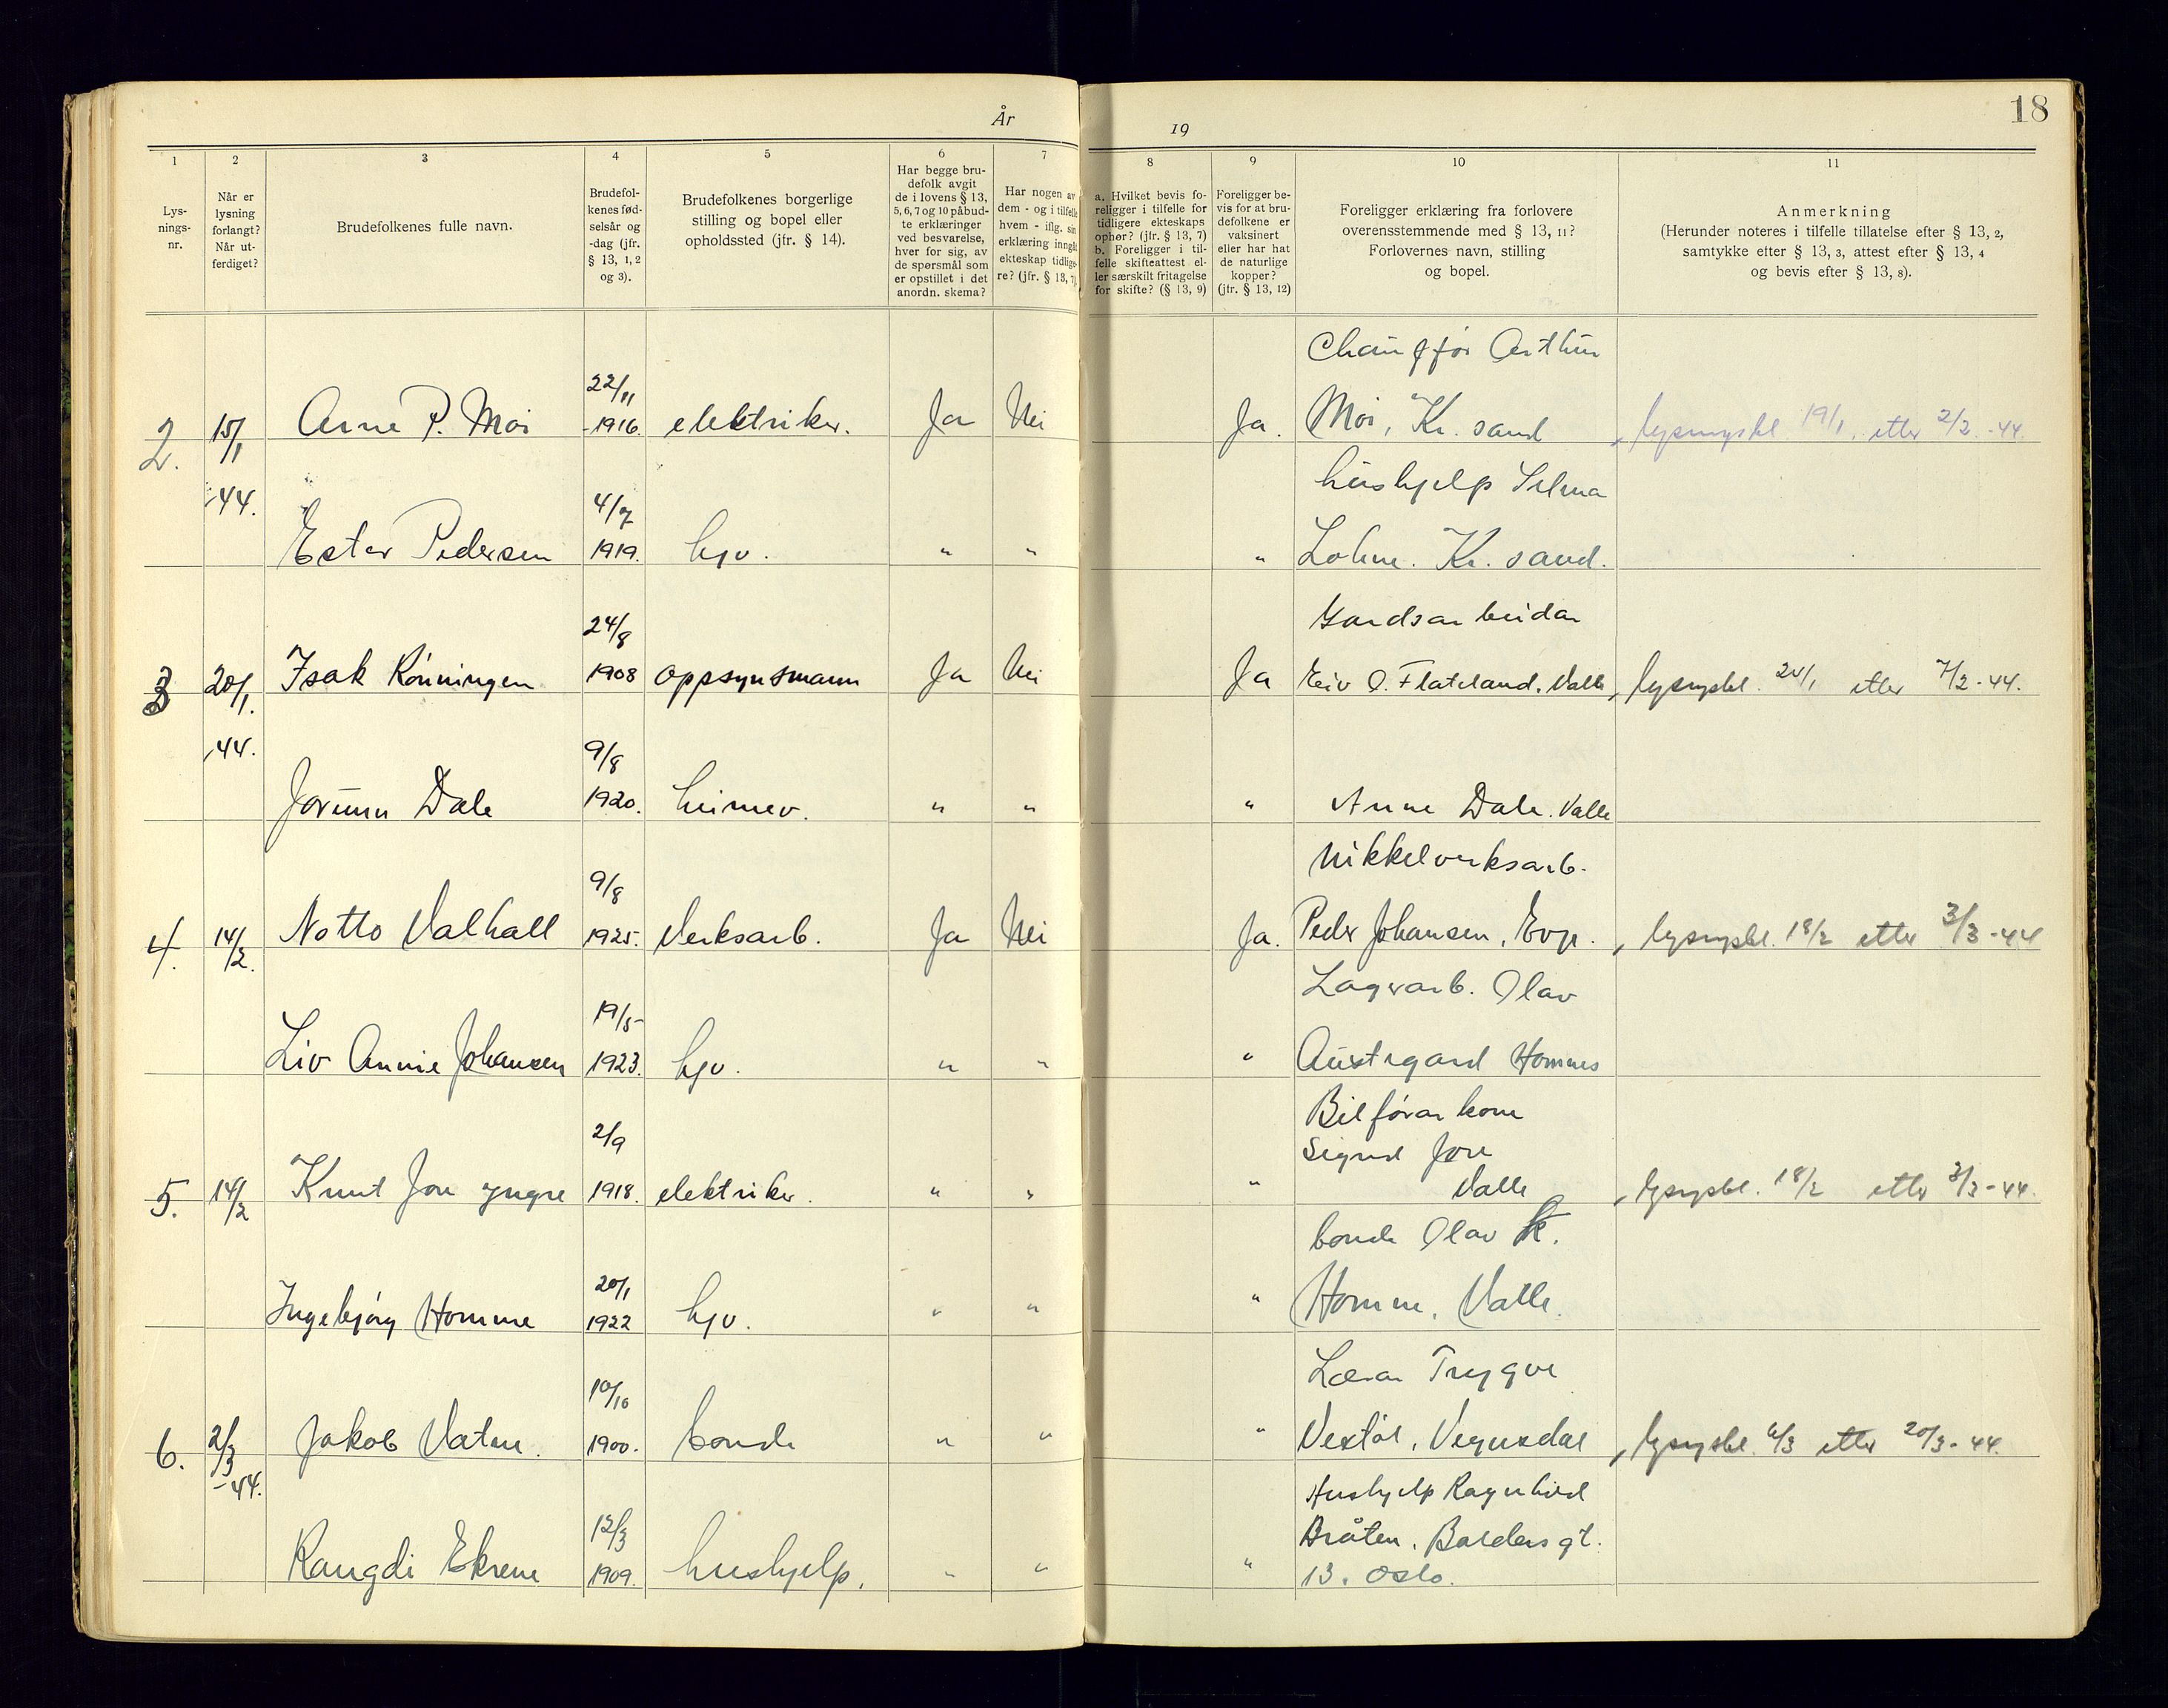 År
19
18
1
Lys-
nings-
nr.
2
Når er
lysning
forlangt?
Når ut-
ferdiget?
3
Brudefolkenes fulle navn.
4
Brudefol-
kenes fød-
selsår og
-dag (jfr.
§ 13, 1, 2
og 3).
5
Brudefolkenes borgerlige
stilling og bopel eller
opholdssted (jfr. § 14).
6
Har begge bru-
defolk avgit
de i lovens § 13,
5, 6, 7 og 10 påbud-
te erklæringer
ved besvarelse,
hver for sig, av
de spørsmål som
er opstillet i det
anordn. skema?
7
Har nogen av
dem - og i tilfelle
hvem - iflg. sin
erklæring inngåt
ekteskap tidlige-
re? (jfr. § 13, 7)
8
a. Hvilket bevis fo-
religger i tilfelle for
tidligere ekteskaps
ophør? (jfr. § 13, 7)
b. Foreligger i til-
felle skifteattest el-
ler særskilt fritagelse
for skifte? (§ 13, 9)
9
Foreligger be-
vis for at bru-
defolkene er
vaksinert
eller har hat
de naturlige
kopper?
(jfr. § 13, 12)
10
Foreligger erklæring fra forlovere
overensstemmende med § 13, 11?
Forlovernes navn, stilling
og bopel.
11
Anmerkning
(Herunder noteres i tilfelle tillatelse efter § 13, 2,
samtykke efter § 13, 3, attest efter § 13, 4
og bevis efter § 13, 8).
Chauffør Arthur
22/11
2. 15/1 Arne P. Moi -1916. elektriker. Ja Nei Ja. Moi, Kr. sand 19/1. etter 2/2.-44.
44. 4/7 hushjelp Selma
Ester Pedersen 1919. hjv. " " " Lohne. Kr. sand.
24/8 Gardsarbeidar
3 20/1. Isak Rønningen 1908 oppsynsmann Ja Nei Ja Eiv O. Flateland. Valle, 24/1 etter 7/2-44.
44. 9/8
Jorunn Dale 1920. heimev. " " " Anne Dale. Valle
9/8 Nikkelverksarb.
4. 14/2. Notto Valhall 1925. Verksarb. Ja Nei Ja. Peder Johansen, Evje. 18/2 etter 3/3-44
19/5 Lagerarb. Olav
Liv Annie Johansen 1923. hjv. " " " Austegard Hornnes
2/9 Bilførar kone
Sigrid Jore
5. 14/2 Knut Jore yngre 1918. elektriker. " " " Valle 18/2 etter 3/3-44.
bonde Olav K.
20/1
Ingebjørg Homme 1922 hjv. " " " Homme, Valle.
10/10 Lærar Trygve
6. 2/3 Jakob Vatne. 1900. bonde " " " Vestøl, Vegusdal 6/3 etter 20/3-44.
-44. Hushjelp Ragnhild
12/3 Bråten. Balders gt.
Rangdi Ekrene 1909. hushjelp. " " " 13. Oslo.